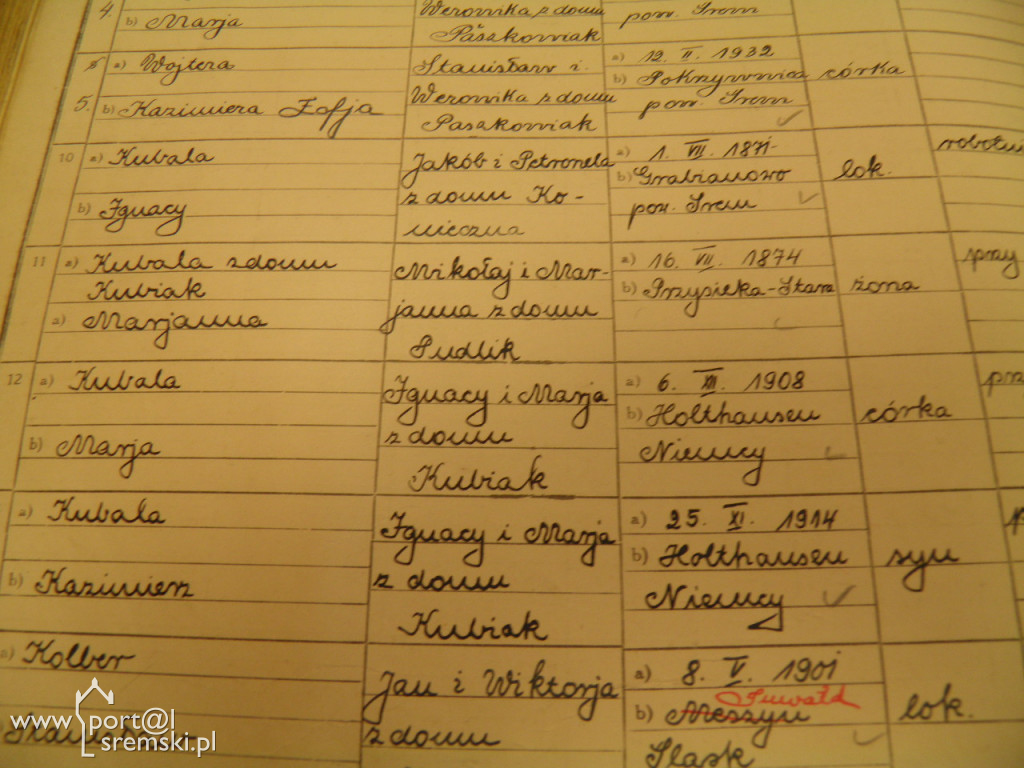 4.
b) Marja
Weronika z domu
Paszkowiak
pow. Śrem
5
5.
a) Wojtera
b) Kazimiera Zofja
Stanisław i
Weronika z domu
Paszkowiak
a) 12. II. 1932
b) Pokrzywnica
pow. Śrem
córka
10
a) Kubala
b) Ignacy
Jakób i Petronela
z domu Ko-
nieczna
a) 1. VII. 1871
b) Grabianowo
pow. Śrem
lok.
11
a) Kubala z domu
Kubiak
a) Marjanna
Mikołaj i Mar-
janna z domu
Pudlik
a) 16. VII. 1874
b) Przysieka-Stara
żona
12
a) Kubala
b) Marja
Ignacy i Marja
z domu
Kubiak
a) 6. XII. 1908
b) Holthausen
Niemcy
córka
a) Kubala
b) Kazimierz
Ignacy i Marja
z domu
Kubiak
a) 25. XI. 1914
b) Holthausen
Niemcy
syn
a) Kolber
Jan i Wiktorja
z domu
a) 8. V. 1901
b)
Śląsk
lok.
www.portal
sremski.pl